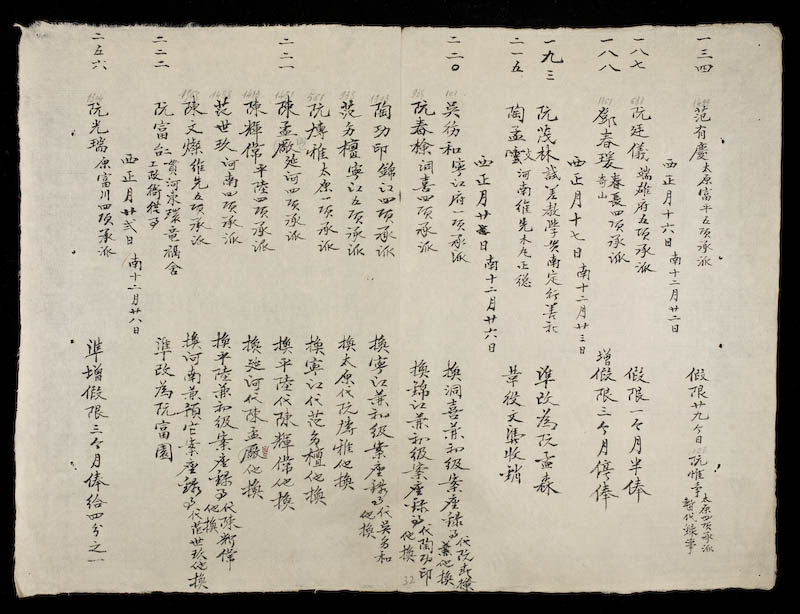 一三四 范有慶 太原富平五項承派 假限廿九个日 阮惟 太原四項承派 暫代錄事
西正月十六日 南十二月廿二日
一八七 阮廷儀 端雄府五項承派 假限一个月半俸
一八八 鄧春瑗 春長四項承派 增假限三个月停俸
西正月十七日 南十二月廿三日
一九三 阮茂林 試差教學 南定行善社 準改為阮孟森
二一五 陶孟雲 河南維先木凡正總 革役文憑收銷
西正月廿 日 南十二月廿六日
二二〇 吳 和 寧江府一項承派 換洞喜兼初級案座錄事代阮春檢他換
阮春檢 洞喜四項承派 換錦江兼初級案座錄事代陶功印他換
陶功印 錦江四項承派 換寧江兼初級案座錄事代吳 和他換
范芳檀 寧江五項承派 換太原代阮 雅他換
阮 雅 太原一項承派 換寧江代范芳檀他換
二二一 陳孟厰 延河四項承派 換平陸代陳輝偉他換
陳輝偉 平陸四項承派 換延河代陳孟厰他換
范世玖 河南四項承派 換平陸兼初級案座錄事代陳輝偉他換
陳文燦 維先五項承派 換河南兼預它案座錄事代范世玖他換
二二二 阮富台 準改為阮富園
西正月廿弍日 南十二月廿八日
二五六 阮光瑞 原富川四項承派 準增假限三个月俸給四分之一